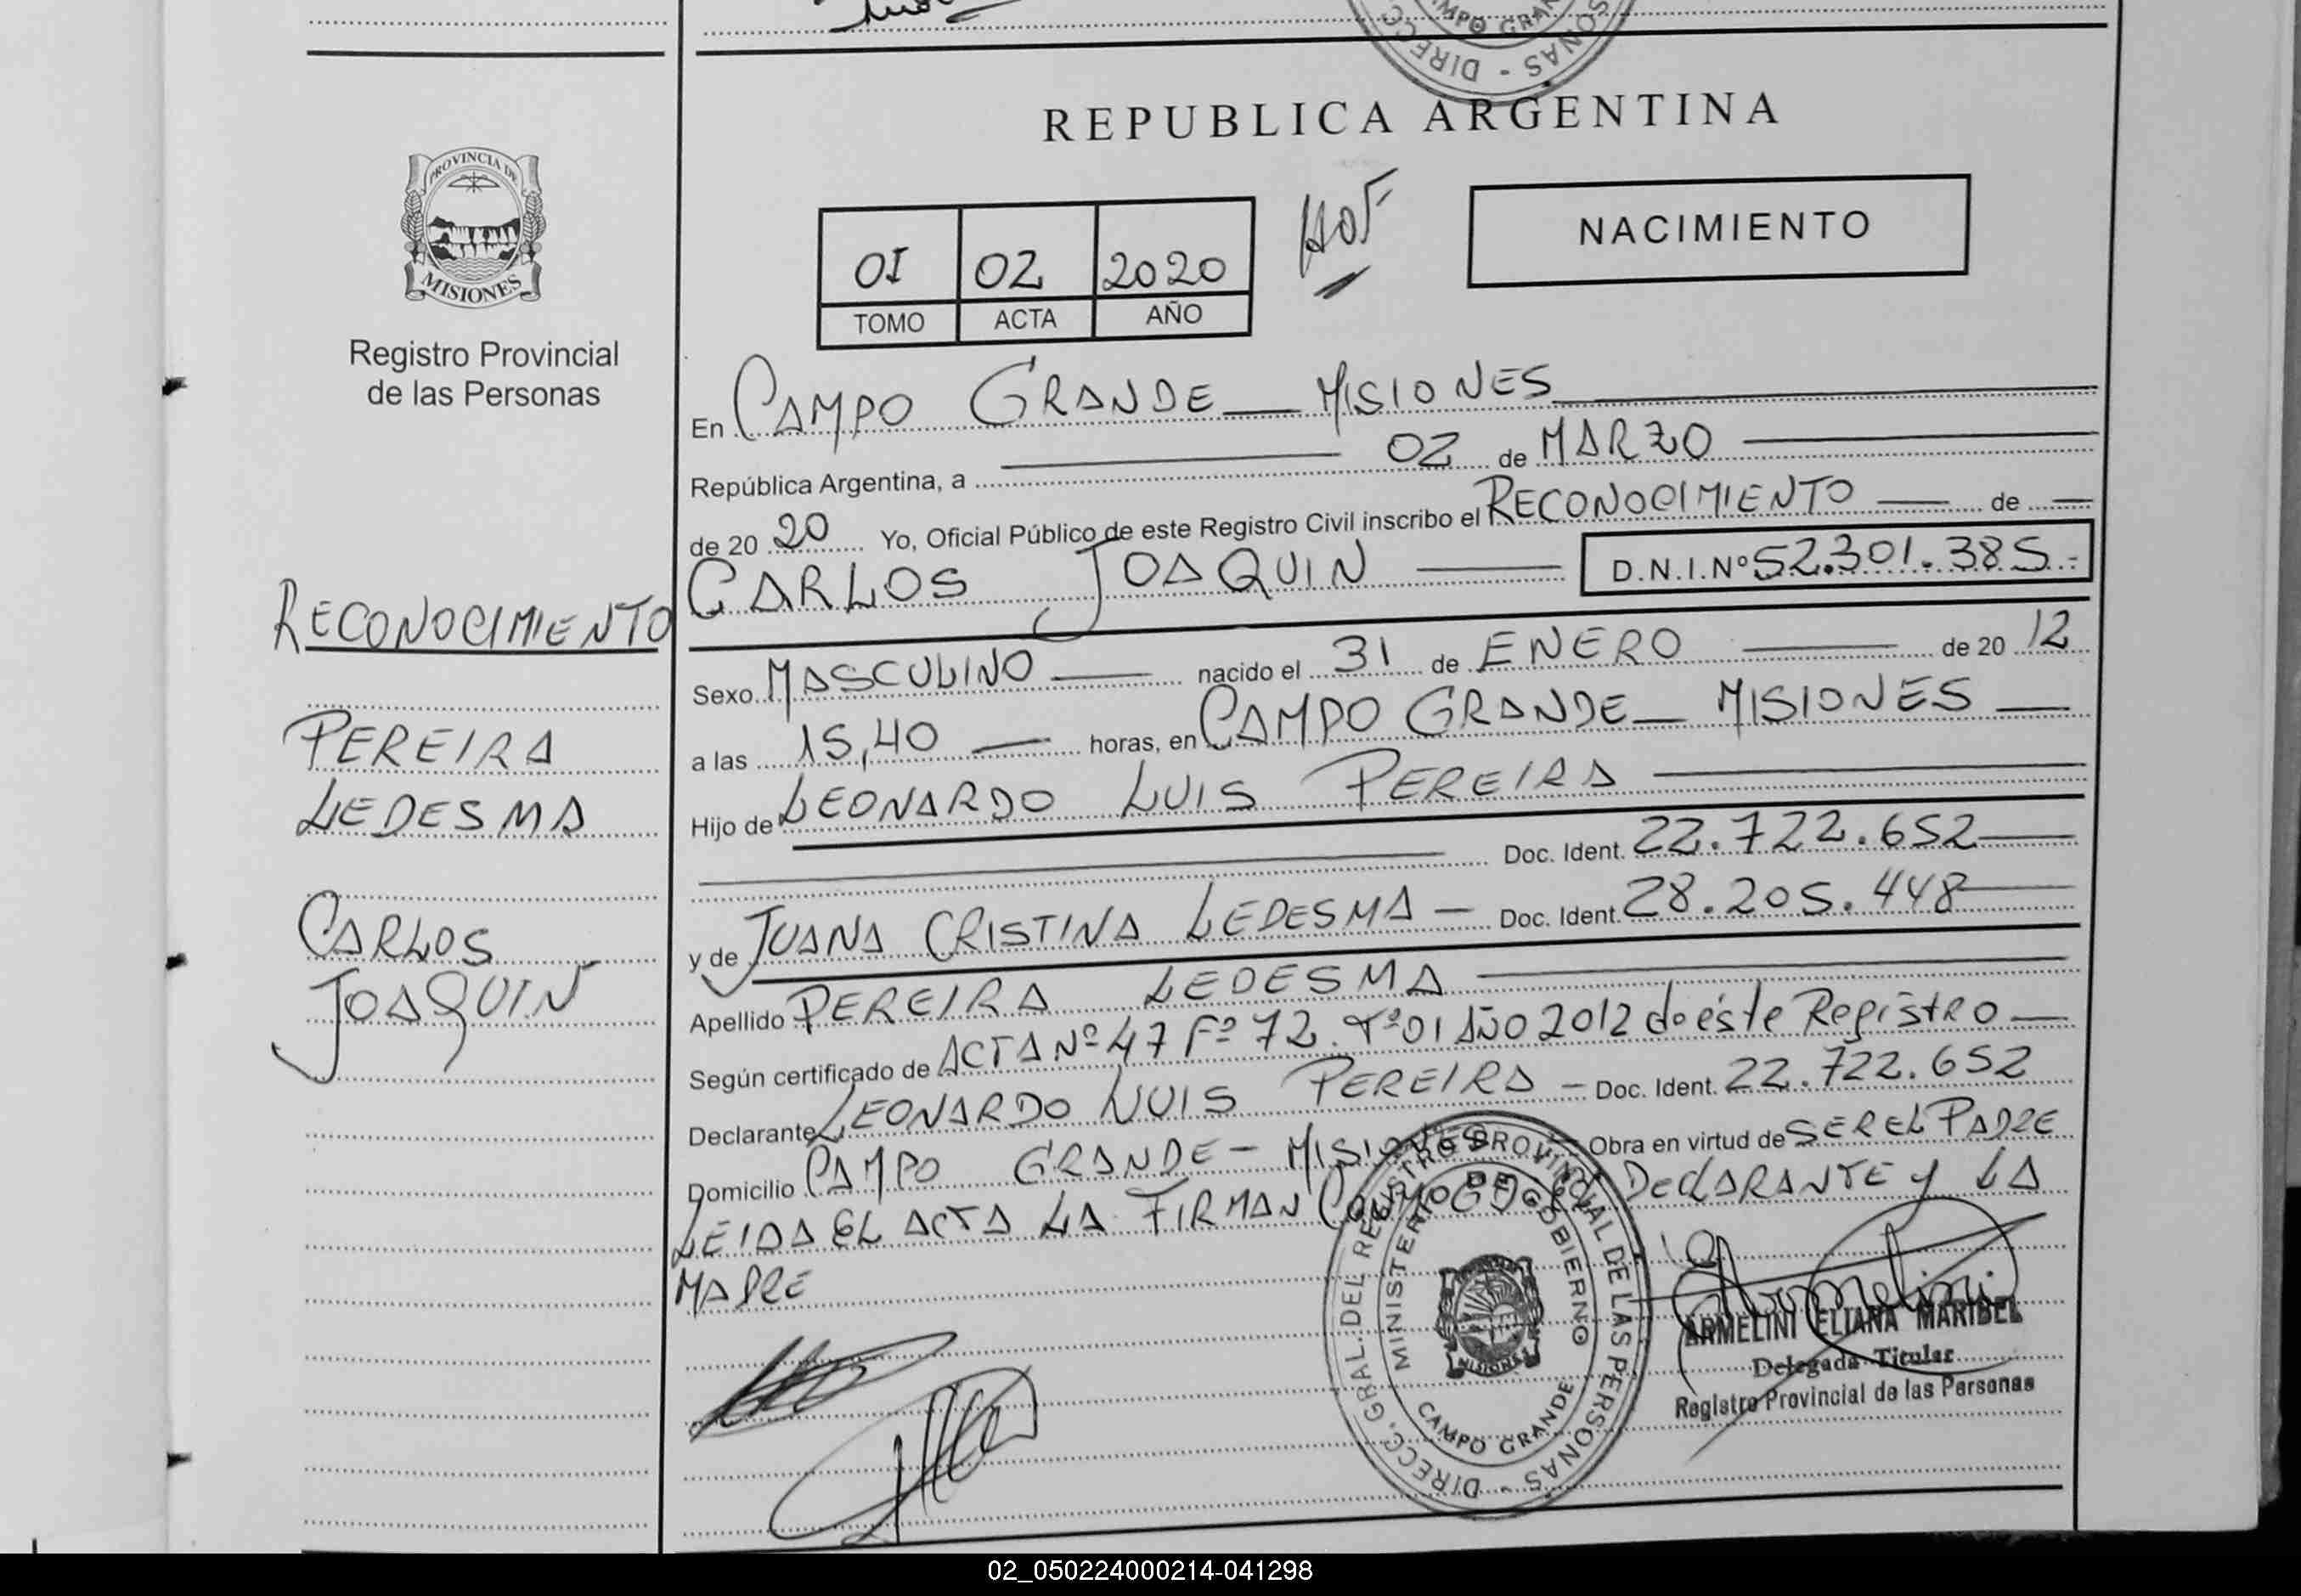 DIRECC
CAMPO GRAN
SONAS
REPUBLICA ARGENTINA
PROVINCIA DE
MISIONES
Registro Provincial
de las Personas
01 02 2020
TOMO ACTA AÑO
NACIMIENTO
En CAMPO GRANDE — MISIONES
República Argentina, a 02 de MARZO
de 20 20 Yo, Oficial Público de este Registro Civil inscribo el RECONOCIMIENTO — de —
CARLOS JOAQUIN — D.N.I.Nº 52.301.385.-
Sexo MASCULINO — nacido el 31 de ENERO — de 20 12
a las 15,40 — horas, en CAMPO GRANDE — MISIONES —
Hijo de LEONARDO LUIS PEREIRA
Doc. Ident. 22.722.652
y de JUANA CRISTINA LEDESMA — Doc. Ident. 28.205.448
Apellido PEREIRA LEDESMA
Según certificado de ACTA Nº 47 Fº 72. Tº 01 AÑO 2012 de éste Registro —
Declarante LEONARDO LUIS PEREIRA — Doc. Ident. 22.722.652
Domicilio CAMPO GRANDE - MISIONES Obra en virtud de SER EL PADRE
LEIDA EL ACTA LA FIRMAN DECLARANTE y LA
MADRE
RECONOCIMIENTO
PEREIRA
LEDESMA
CARLOS
JOAQUIN
DIRECC. GRAL. DEL REGISTRO PROVINCIAL DE LAS PERSONAS -
MINISTERIO DE GOBIERNO
MISIONES
CAMPO GRANDE
ARMELINI ELIANA MARIBEL
Delegada Titular
Registro Provincial de las Personas
02_050224000214-041298